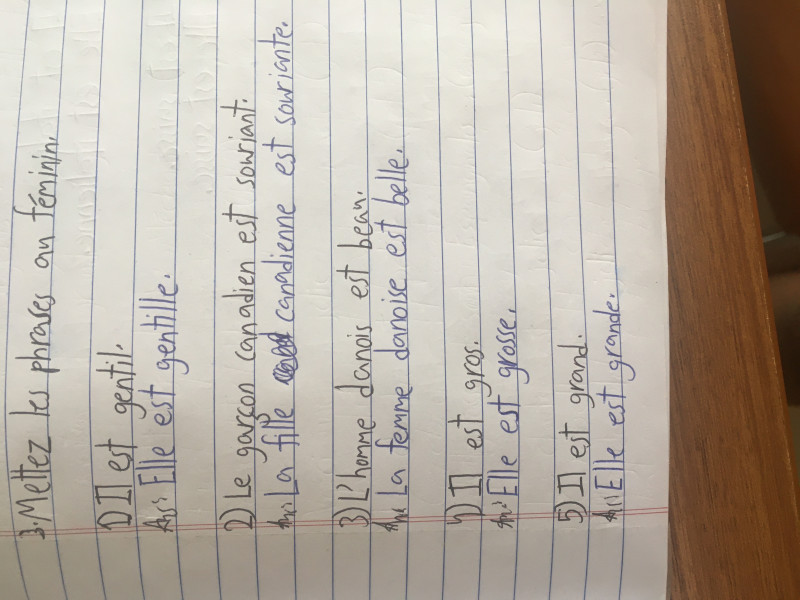 3. Mettez les phrases au féminin.
1) Il est gentil.
Ans: Elle est gentille.
2) Le garçon canadien est souriant.
Ans: La fille canadienne est souriante.
3) L'homme danois est beau.
Ans: La femme danoise est belle.
4) Il est gros.
Ans: Elle est grosse.
5) Il est grand.
Ans: Elle est grande.